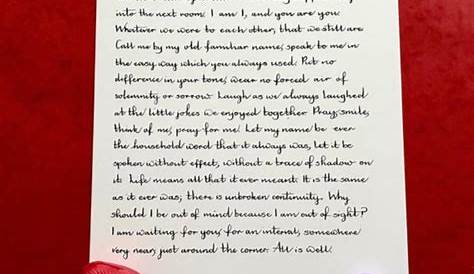 into the next room. I am I, and you are you.
Whatever we were to each other, that we still are.
Call me by my old familiar name, speak to me in
the easy way which you always used. Put no
difference in your tone, wear no forced air of
solemnity or sorrow. Laugh as we always laughed
at the little jokes we enjoyed together. Pray, smile,
think of me, pray for me. Let my name be ever
the household word that it always was, let it be
spoken without effect, without a trace of shadow on
it. Life means all that it ever meant. It is the same
as it ever was; there is unbroken continuity. Why
should I be out of mind because I am out of sight?
I am waiting for you, for an interval, somewhere
very near, just around the corner. All is well.